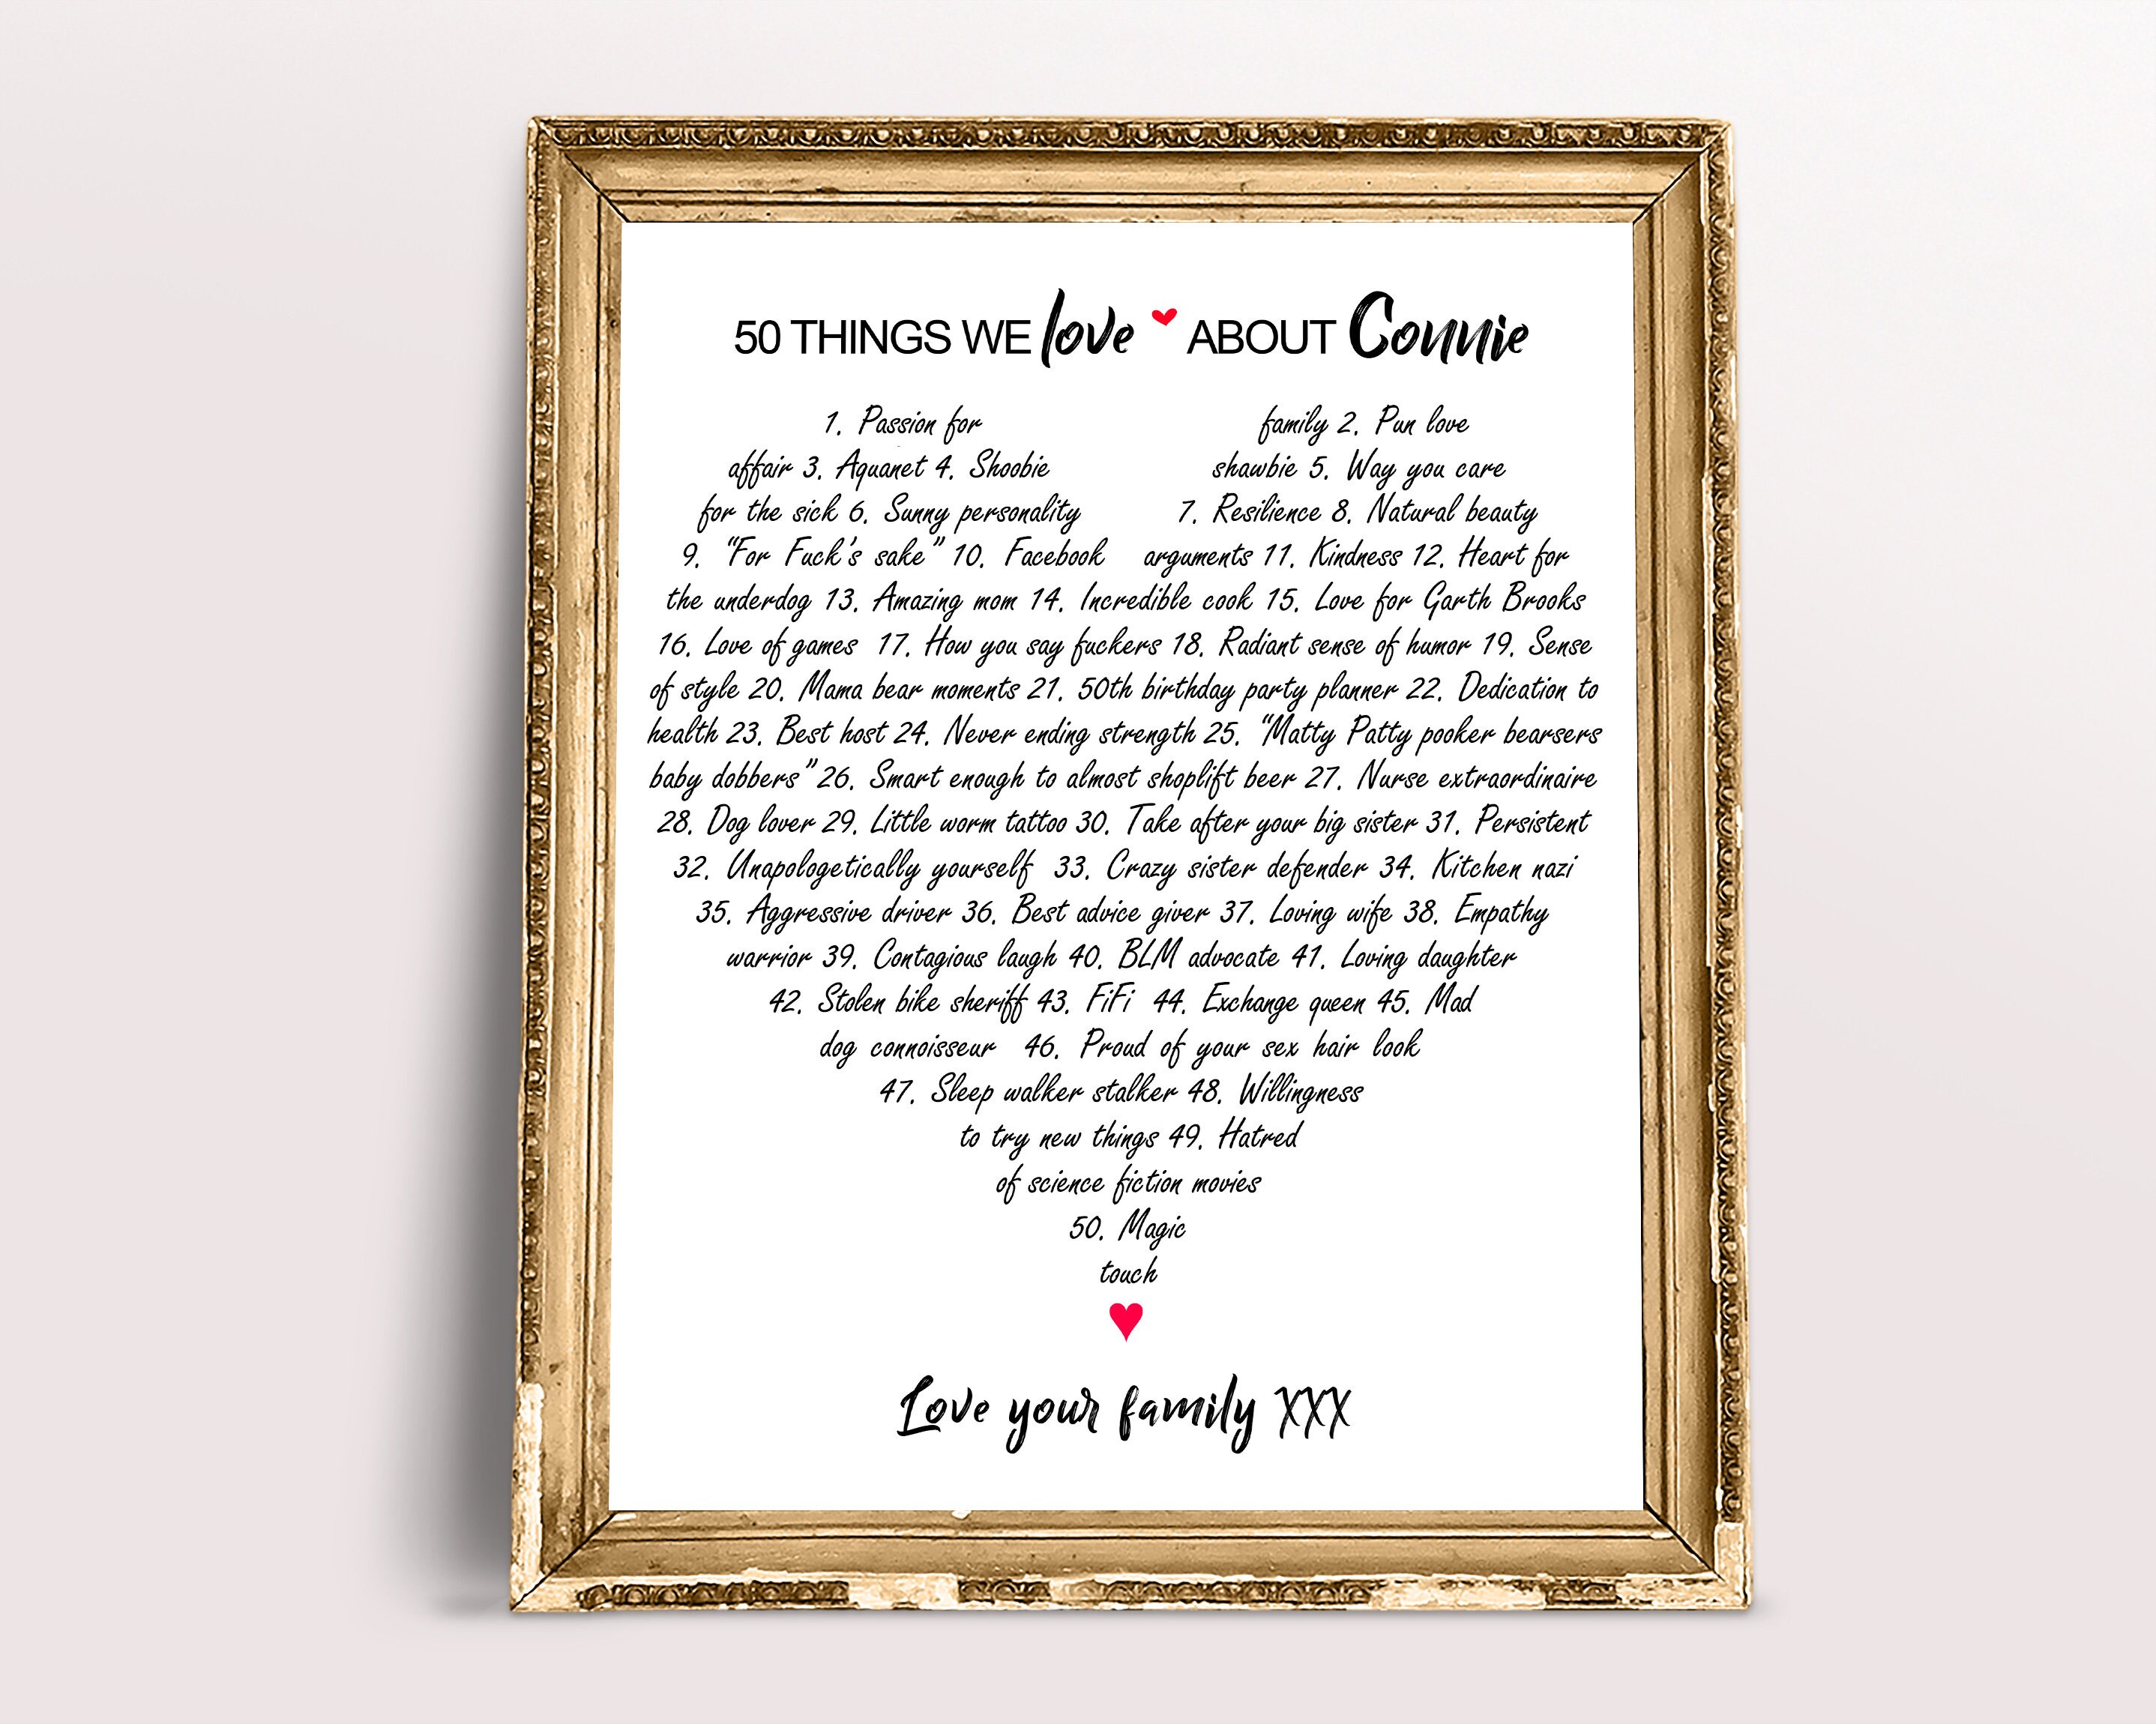 50 THINGS WE love ABOUT Connie
1. Passion for family 2. Pun love
affair 3. Aquanet 4. Shoobie shawbie 5. Way you care
for the sick 6. Sunny personality 7. Resilience 8. Natural beauty
9. "For Fuck's sake" 10. Facebook arguments 11. Kindness 12. Heart for
the underdog 13. Amazing mom 14. Incredible cook 15. Love for Garth Brooks
16. Love of games 17. How you say fuckers 18. Radiant sense of humor 19. Sense
of style 20. Mama bear moments 21. 50th birthday party planner 22. Dedication to
health 23. Best host 24. Never ending strength 25. "Matty Patty pooker bearsers
baby dobbers" 26. Smart enough to almost shoplift beer 27. Nurse extraordinaire
28. Dog lover 29. Little worm tattoo 30. Take after your big sister 31. Persistent
32. Unapologetically yourself 33. Crazy sister defender 34. Kitchen nazi
35. Aggressive driver 36. Best advice giver 37. Loving wife 38. Empathy
warrior 39. Contagious laugh 40. BLM advocate 41. Loving daughter
42. Stolen bike sheriff 43. FiFi 44. Exchange queen 45. Mad
dog connoisseur 46. Proud of your sex hair look
47. Sleep walker stalker 48. Willingness
to try new things 49. Hatred
of science fiction movies
50. Magic
touch
Love your family xxx